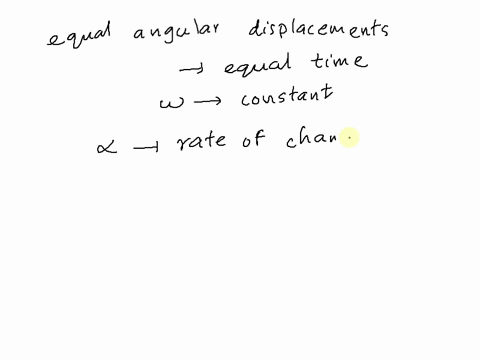 equal angular displacements
→ equal time
ω → constant
α → rate of chan